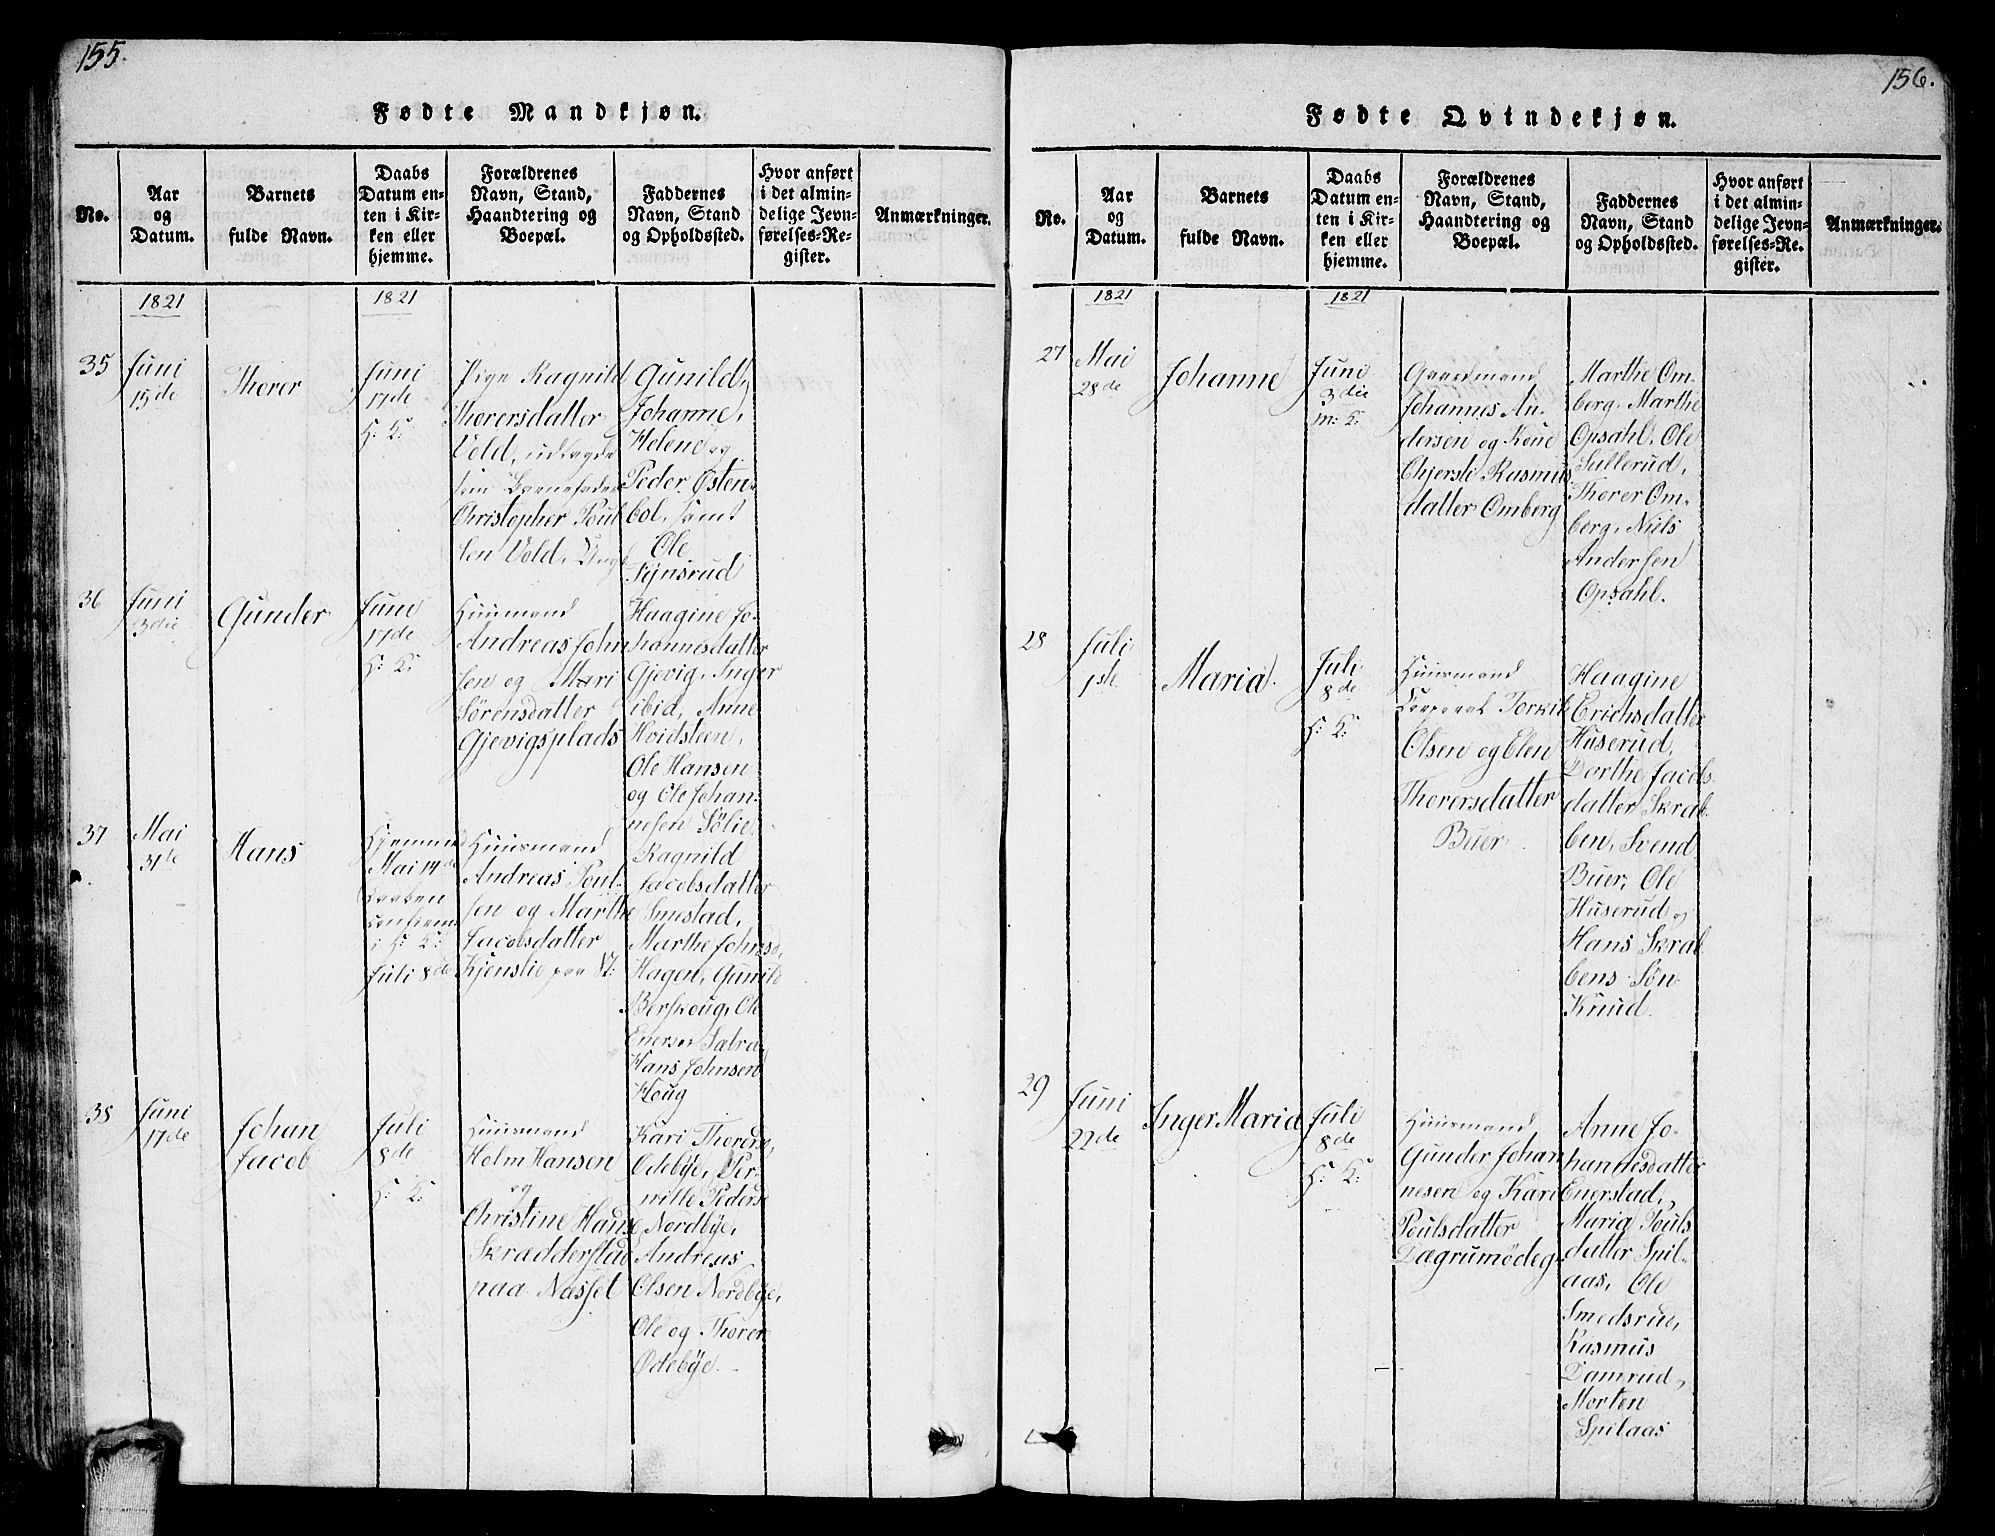 155.
Fødte Mandkjøn.
No.
Aar
og
Datum.
Barnets
fulde Navn.
Daabs
Datum en-
ten i Kir-
ken eller
hjemme.
Forældrenes
Navn, Stand,
Haandtering og
Boepæl.
Faddernes
Navn, Stand
og Opholdssted.
Hvor anført
i det almin-
delige Jevn-
førelses-Re-
gister.
Anmærkninger.
1821
1821
35
Juni
15de
Thorer
Juni
17de
H: K:
Pige Ragnild
Thorersdatter
Vold, udlagde
som Barnefader
Christopher Poul
sen Vold,
Gunild,
Johanne,
Helene og
Peder Østen-
bol, samt
Ole
Synsrud
36
Juni
3die
Gunder
Juni
17de
H: K:
Huusmand
Andreas John
sen og Mari
Sørensdatter
Gjevigsplads
Haagine Jo-
hannesdatter
Gjevig, Inger
ibid, Anne
Hvidsteen,
Ole Hansen
og Ole Johan-
nesen Sølie
37
Mai
31te
Hans
Hjemme
Mai 14de
Daaben
i H: K:
Juli 8de
Huusmand
Andreas Poul-
sen og Marthe
Jacobsdatter
Kjenslie paa St:
Ragnild
Jacobsdatter
Smestad,
Marthe Johnsd,
Hagen, Gunild
Berskoug, Ole
Enersen
Hans Johnsen
Houg
38
Juni
17de
Johan
Jacob
Juli
8de
H: K:
Huusmand
Holm Hansen
og
Christine Hansd
Skrædderstad
paa Næsset
Kari Thorersd,
Odebye, Per-
nille Pedersd
Nordbye,
Andreas
Olsen Nordbye,
Ole og Thorer
Odebye
156.
Fødte Qvindekjøn.
No.
Aar
og
Datum.
Barnets
fulde Navn.
Daabs
Datum en-
ten i Kir-
ken eller
hjemme.
Forældrenes
Navn, Stand,
Haandtering og
Boepæl.
Faddernes
Navn, Stand
og Opholdssted.
Hvor anført
i det almin-
delige Jevn-
førelses-Re-
gister.
Anmærkninger.
1821
1821
27
Mai
28de
Johanne
Juni
3die
m: K:
Gaardmand
Johannes An-
dersen og Kone
Chjersti Rasmus
datter Omberg
Marthe Om-
berg, Marthe
Opsahl, Ole
Sullerud,
Thorer Om-
berg, Niels
Andersen
Opsahl.
28
Juli
1ste
Maria.
Juli
8de
H: K:
Huusmand
Corporal Torkil
Olsen og Elen
Thorersdatter
Buer.
Haagine
Erichsdatter
Huserud,
Dorthe Jacobs
datter Skrab-
ben, Svend
Buer, Ole
Huserud og
Hans Skrab
bens Søn
Knud.
29
Juni
22de
Inger Maria
Juli
8de
H: K:
Huusmand
Gunder Johan
nesen og Kari
Poulsdatter
Dægrumødeg
Anne Jo-
hannesdatter
Enerstad,
Maria Pouls
datter Spil-
aas, Ole
Smedsrud,
Rasmus
Damrud,
Morten
Spilaas